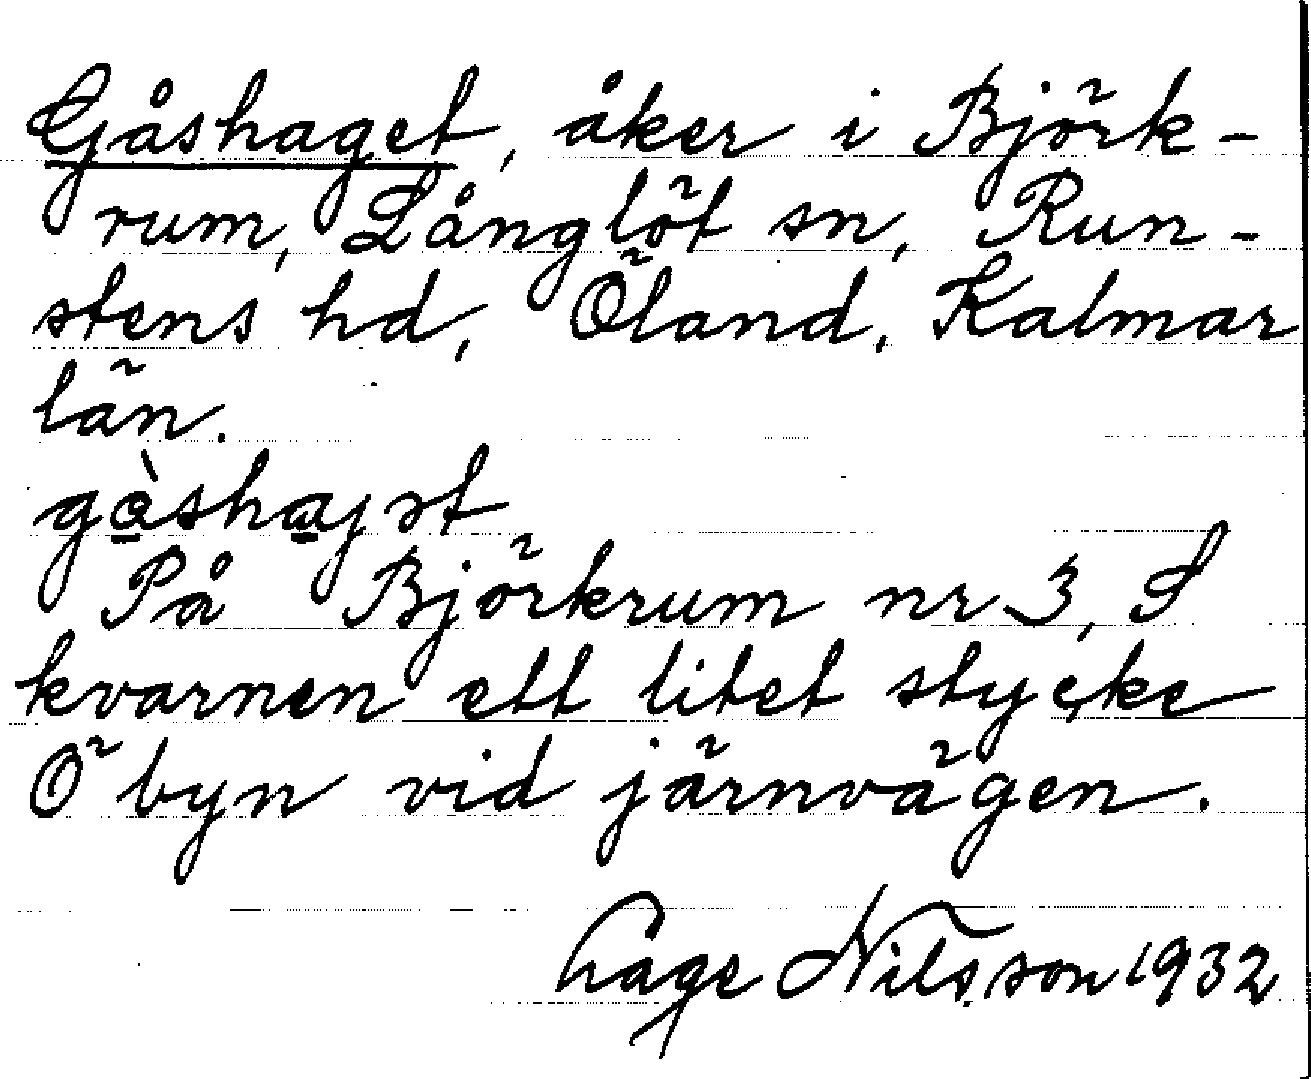 Gåshaget, åker i Björk-
rum, Långlöt sn, Run-
stens hd, Öland, Kalmar
län.
gåshajət
På Björkrum nr 3, S
kvarnen ett litet stycke
Ö byn vid järnvägen.
Hage Nilsson 1932